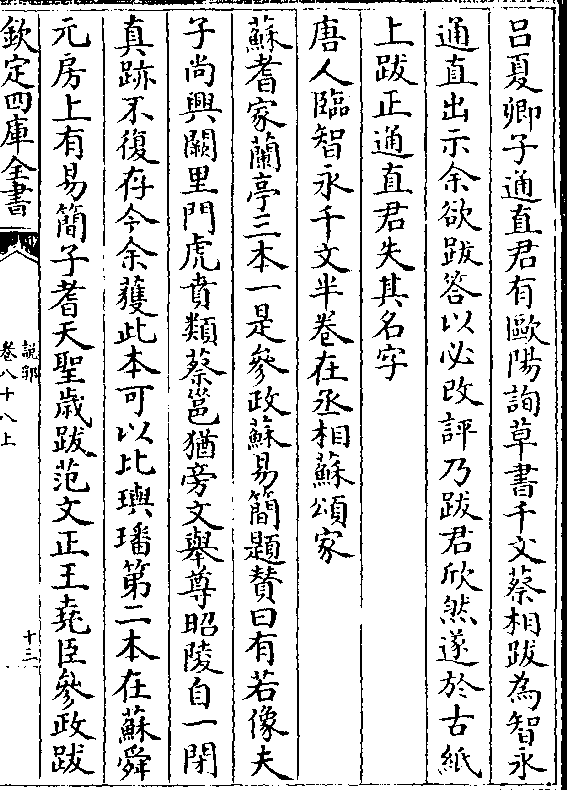 呂夏卿子通直君有歐陽詢草書千文蔡相跋為智永
通直出示余欲跋答以必改評乃跋君欣然遂於古紙
上跋正通直君失其名字
唐人臨智永千文半卷在丞相蘇頌家
蘇耆家蘭亭三本一是參政蘇易簡題賛曰有若像夫
子尚興闕里門虎賁類蔡邕猶旁文舉尊昭陵自一閉
真跡不復存今余獲此本可以比璵璠第二本在蘇舜
元房上有易簡子耆天聖歲跋范文正王堯臣參政跋
欽定四庫全書
說郛
卷八十八上
十三